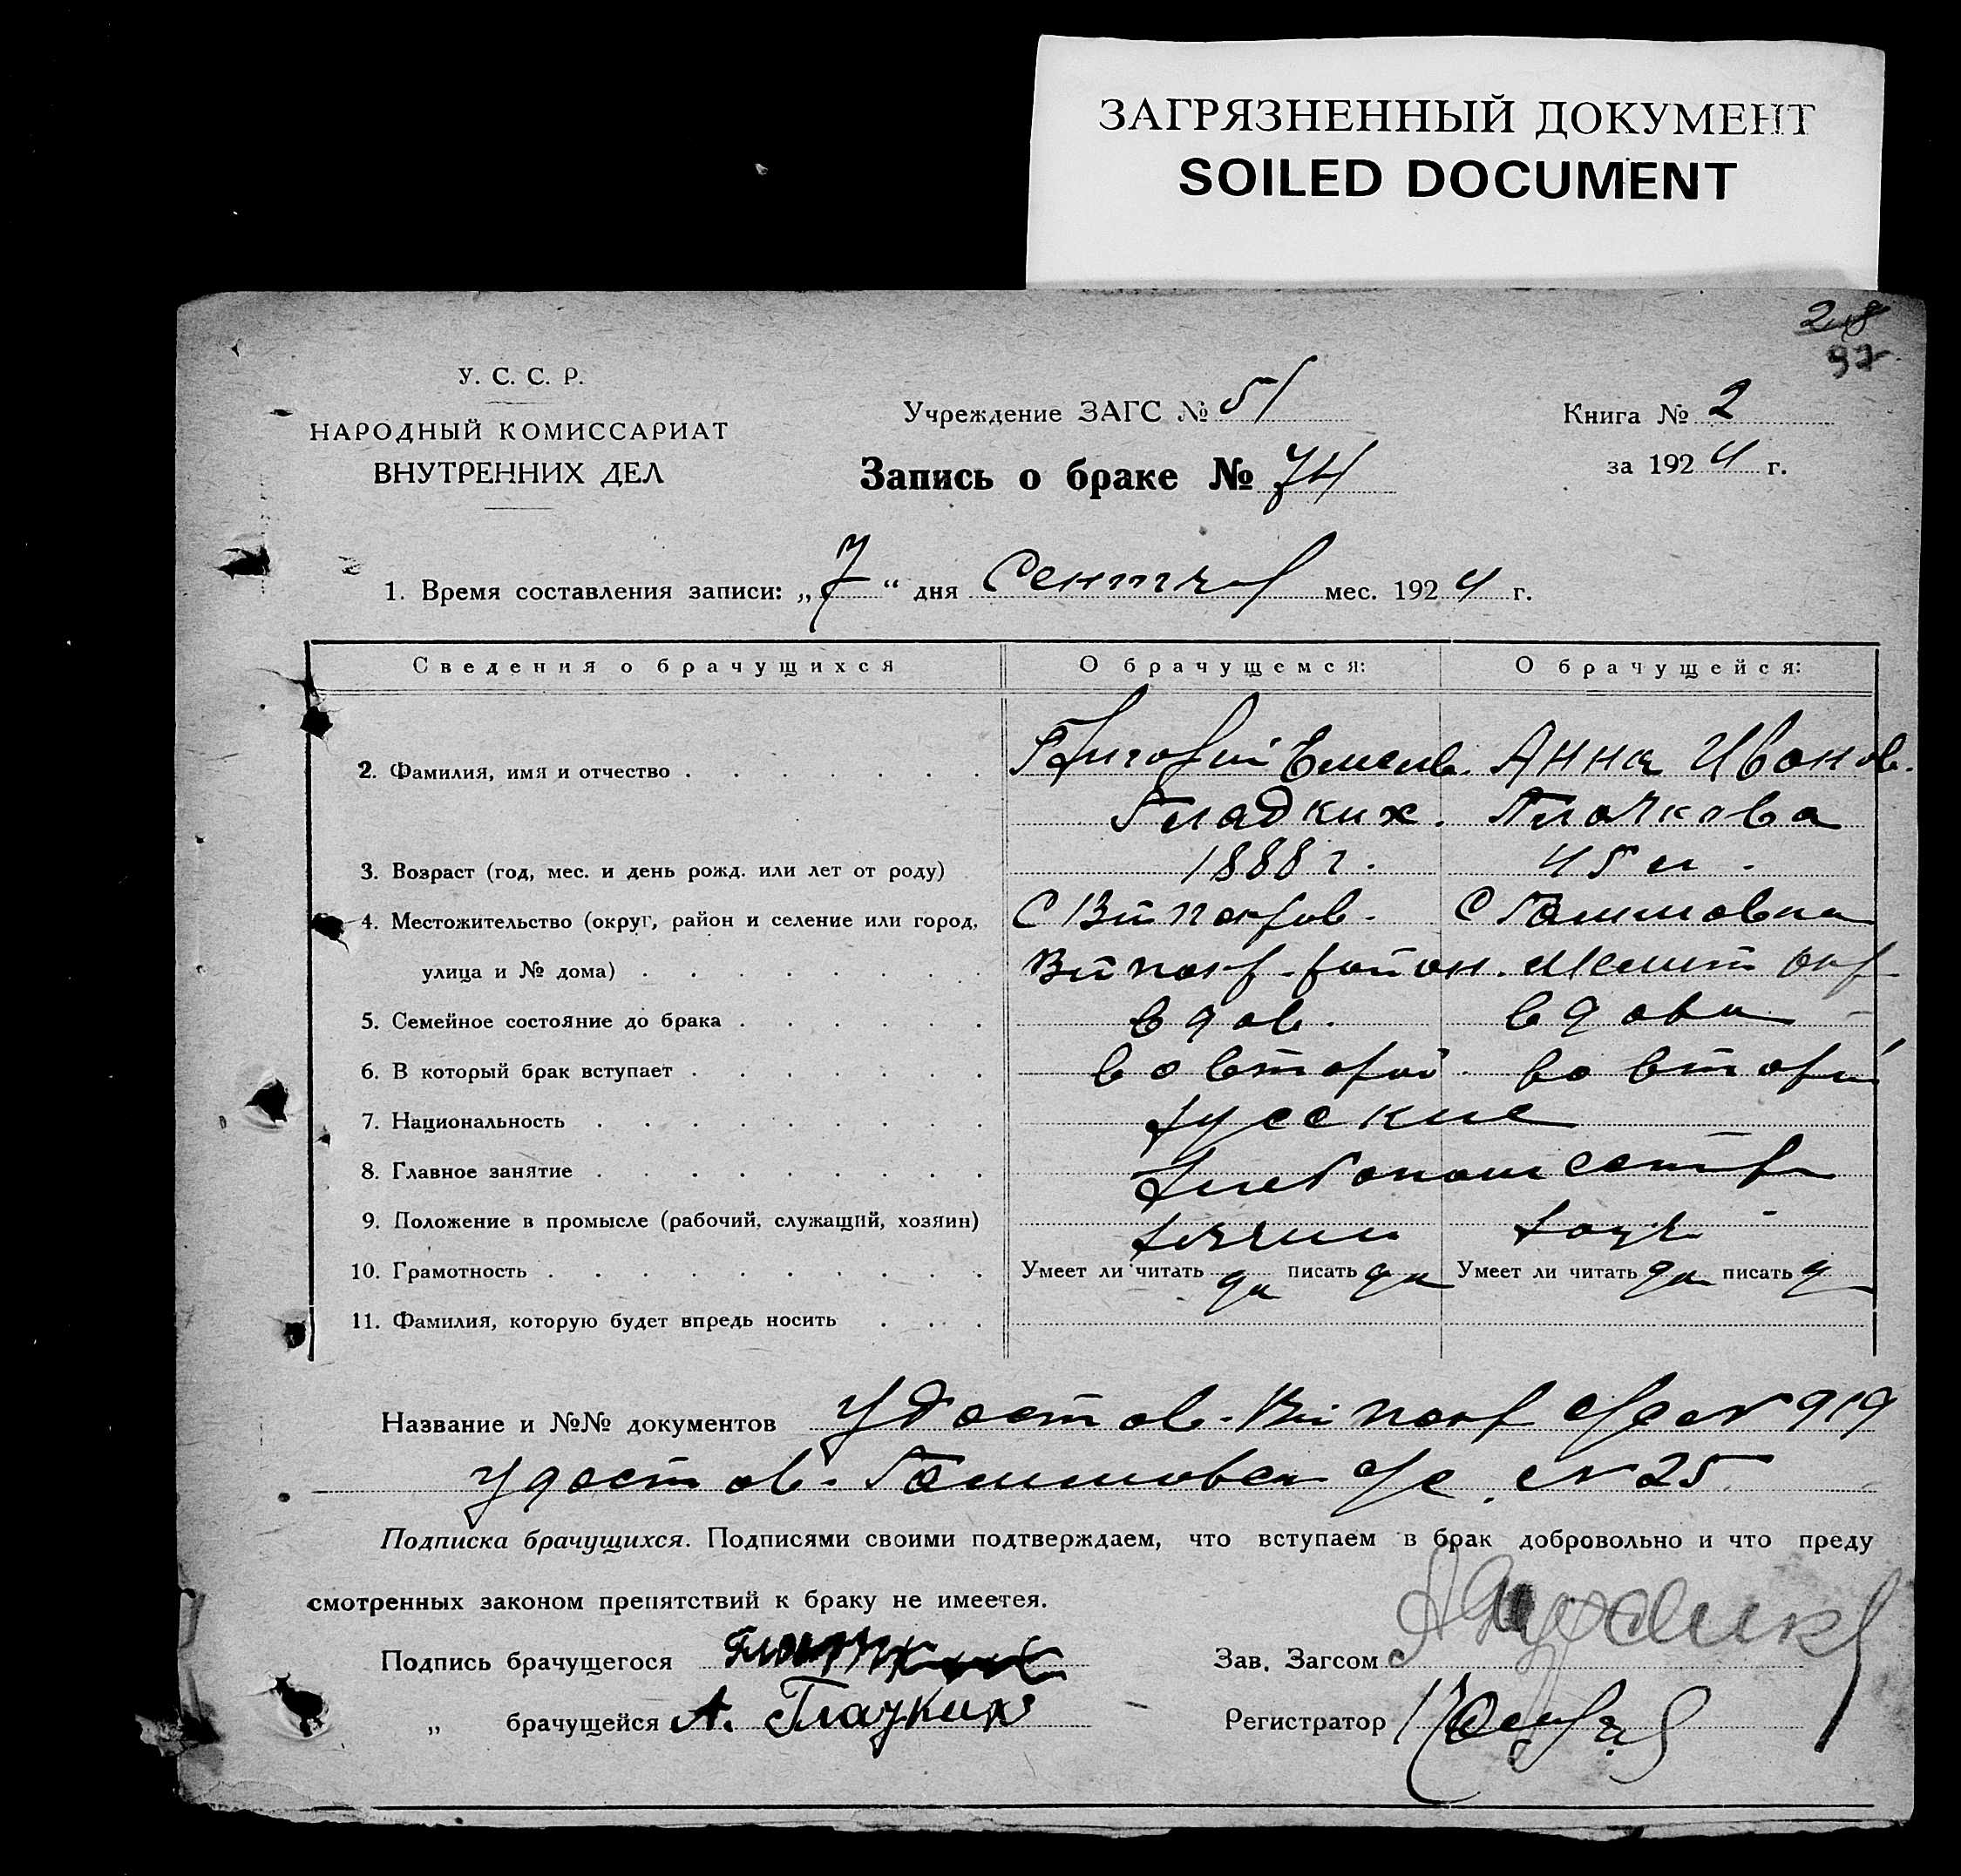 ЗАГРЯЗНЕННЫЙ ДОКУМЕНТ
SOILED DOCUMENT
28
У. С. С. Р.
НАРОДНЫЙ КОМИССАРИАТ
ВНУТРЕННИХ ДЕЛ
Учреждение ЗАГС № 51
Книга № 2
Запись о браке № 74
за 1924 г.
1. Время составления записи: „7“ дня Сентяб мес. 1924 г.
Сведения о брачущихся
О брачущемся:
О брачущейся:
2. Фамилия, имя и отчество
Григорий Емельв. Анна Иванов.
Гладких. Плачкова
3. Возраст (год, мес. и день рожд. или лет от роду) 1888 г. 45 л.
4. Местожительство (округ, район и селение или город, С покров. С
улица и № дома) покр. район. Мелит окр
5. Семейное состояние до брака вдов. вдова
6. В который брак вступает во второй во второй
7. Национальность русские
8. Главное занятие хлебопашеств
9. Положение в промысле (рабочий, служащий, хозяин) хозяин хозя
10. Грамотность Умеет ли читать да писать да Умеет ли читать да писать д
11. Фамилия, которую будет впредь носить
Название и №№ документов Удостов. покр с/с № 919
удостов. с/с. № 25
Подписка брачущихся. Подписями своими подтверждаем, что вступаем в брак добровольно и что преду
смотренных законом препятствий к браку не имеется.
Подпись брачущегося Гладких
Зав. Загсом
„ брачущейся А. Гладких
Регистратор